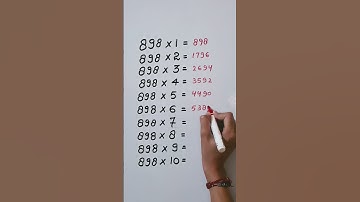 898 x 1 = 898
898 x 2 = 1796
898 x 3 = 2694
898 x 4 = 3592
898 x 5 = 4490
898 x 6 = 538
898 x 7 =
898 x 8 =
898 x 9 =
898 x 10 =